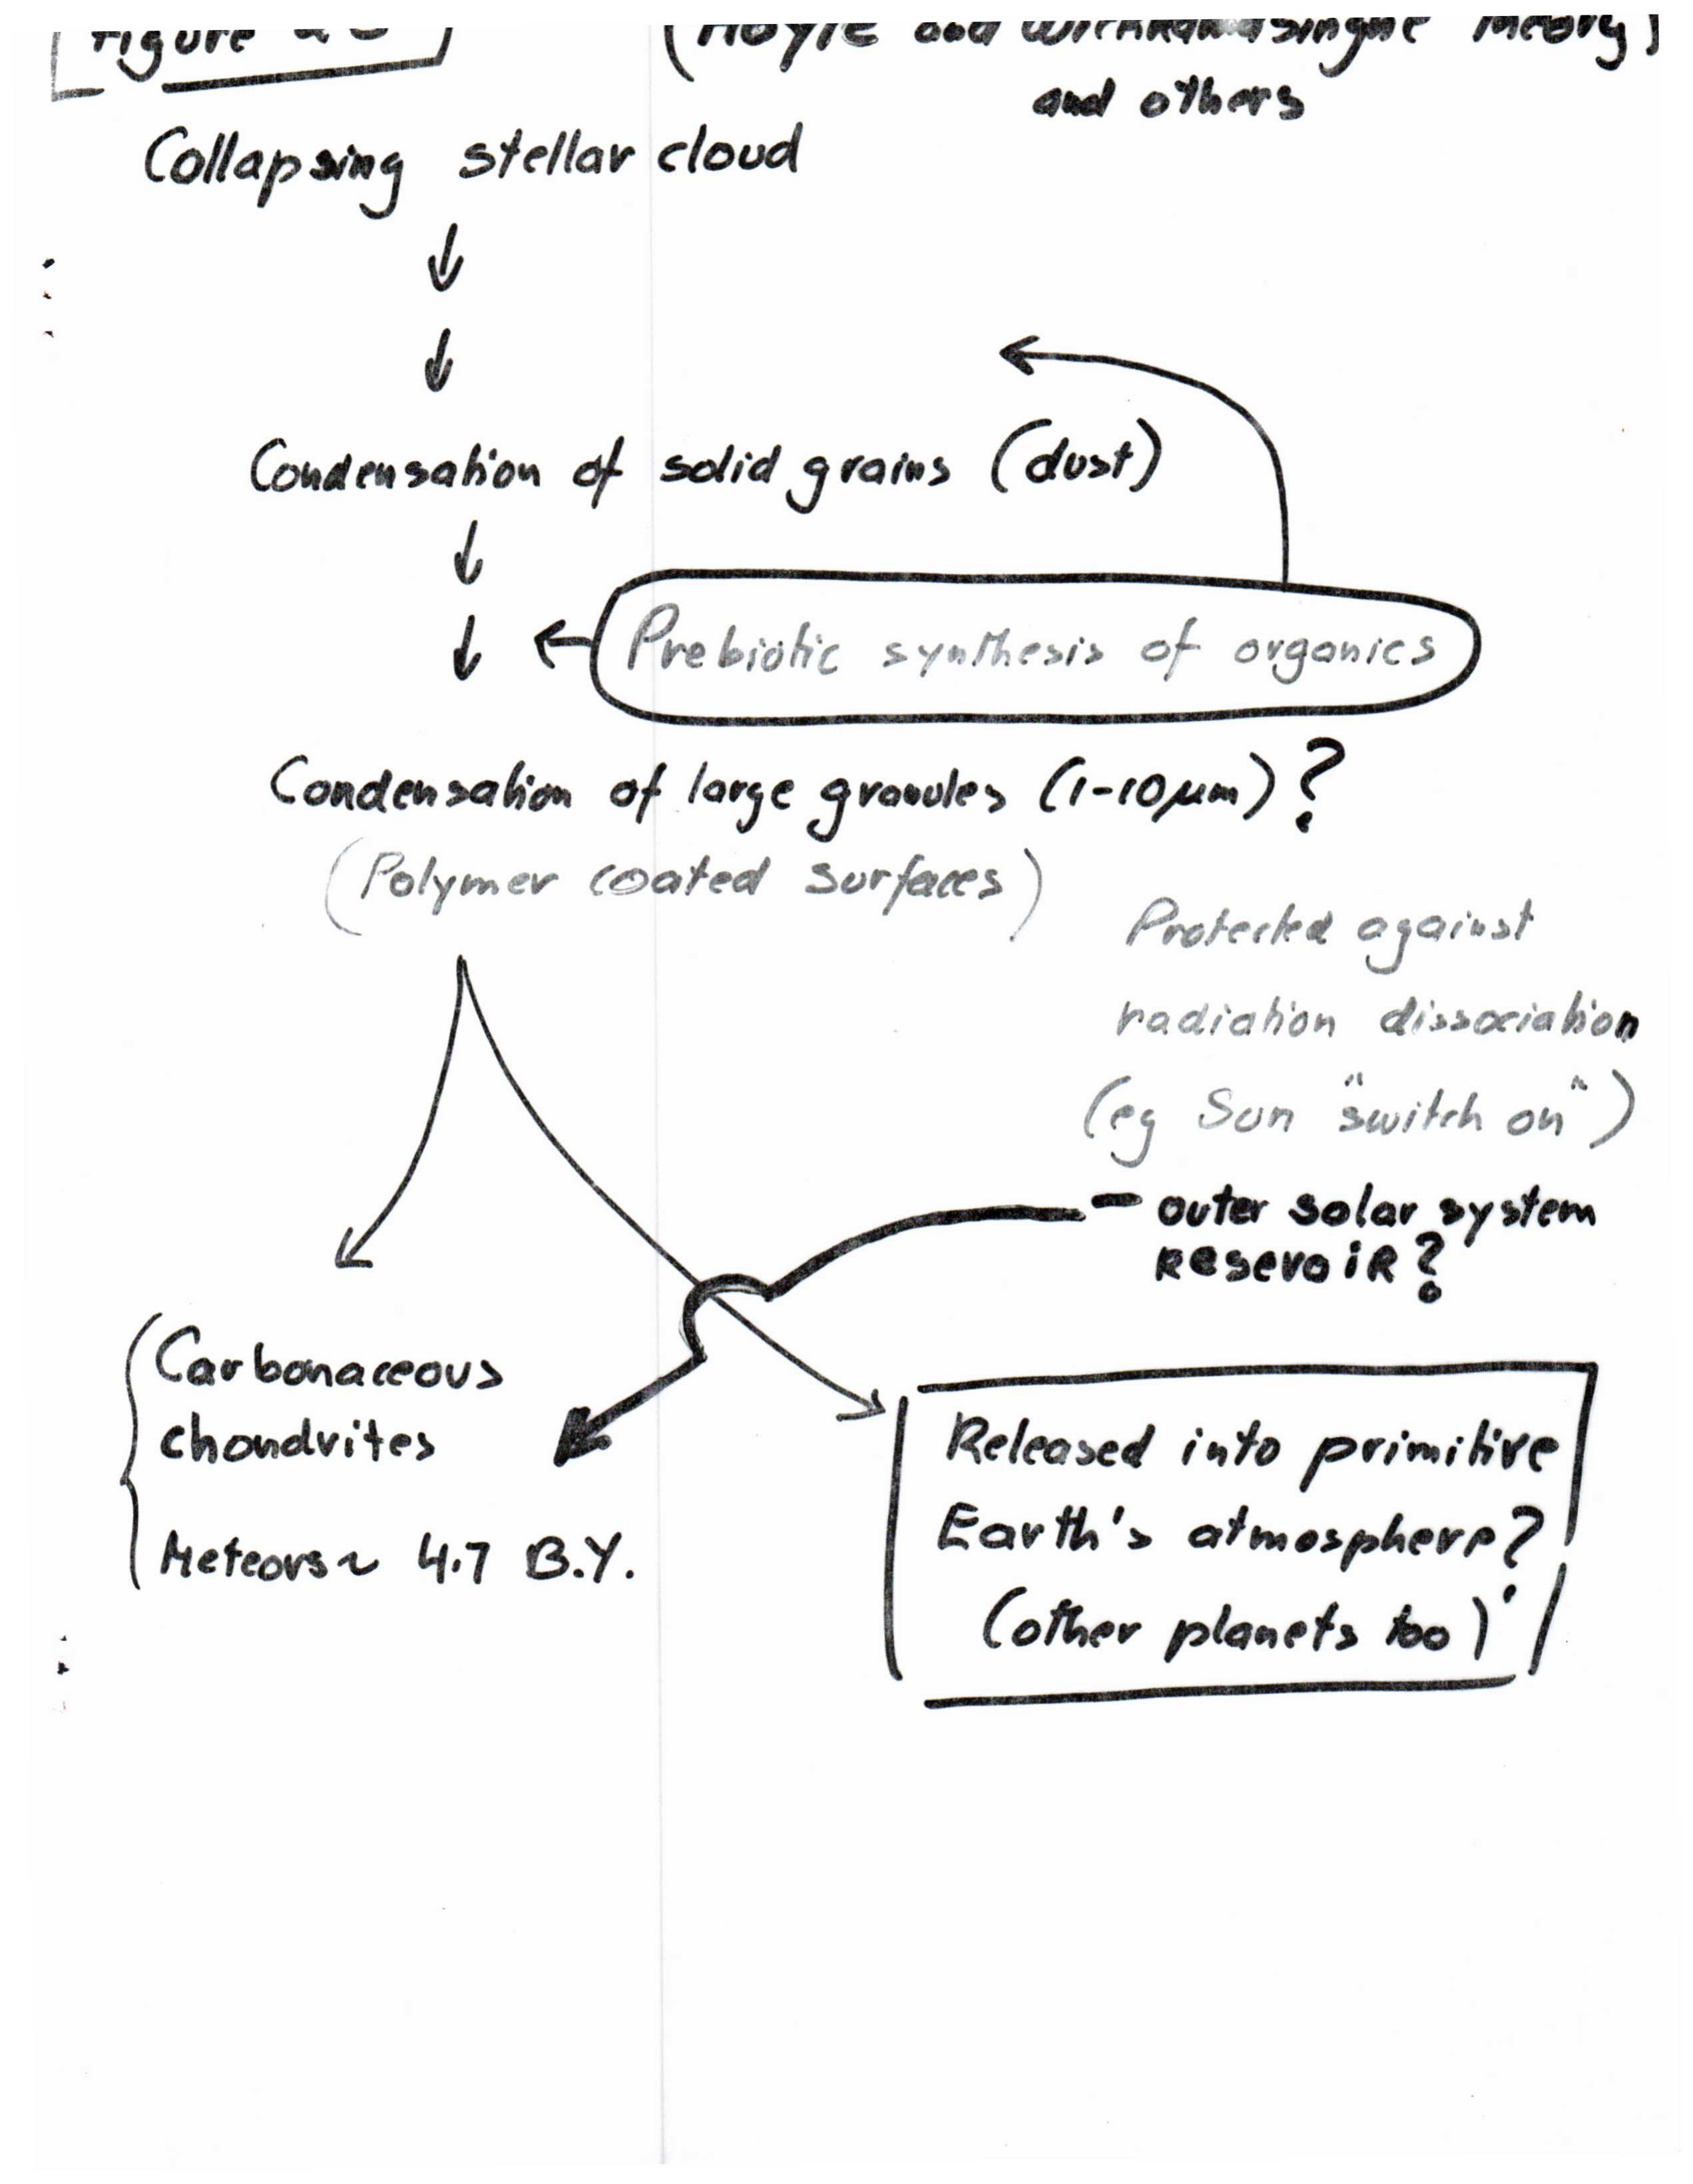 Figure
(Hoyle and Wickramasinghe Theory)
and others
Collapsing stellar cloud
Condensation of solid grains (dust)
Prebiotic synthesis of organics
Condensation of large granules (1-10μm)?
(Polymer coated surfaces)
Protected against
radiation dissociation
(eg Sun "switch on")
- outer solar system
Resevoir?
Carbonaceous
chondrites
Meteors ~ 4.7 B.Y.
Released into primitive
Earth's atmosphere?
(other planets too)